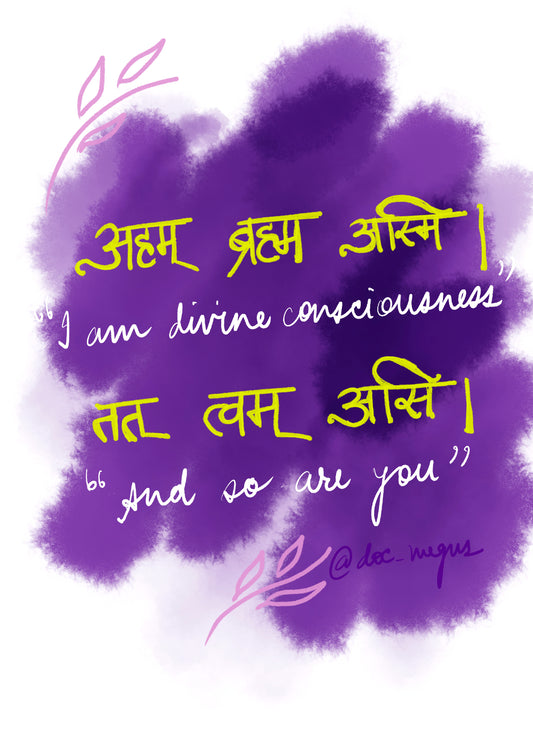 अहम् ब्रह्म अस्मि।
“I am divine consciousness”
तत् त्वम् असि।
“And so are you”
@doc_megus